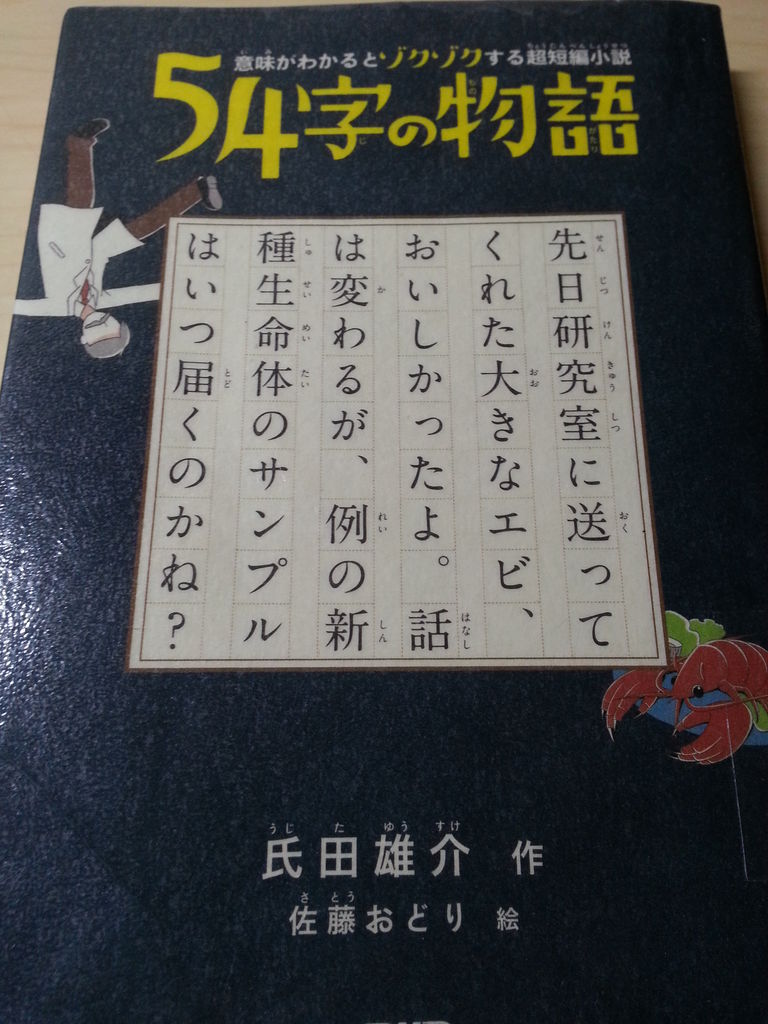 意味がわかるとゾクゾクする超短編小説
54字の物語
先日研究室に送って
くれた大きなエビ、
おいしかったよ。話
は変わるが、例の新
種生命体のサンプル
はいつ届くのかね?
氏田雄介 作
佐藤おどり 絵